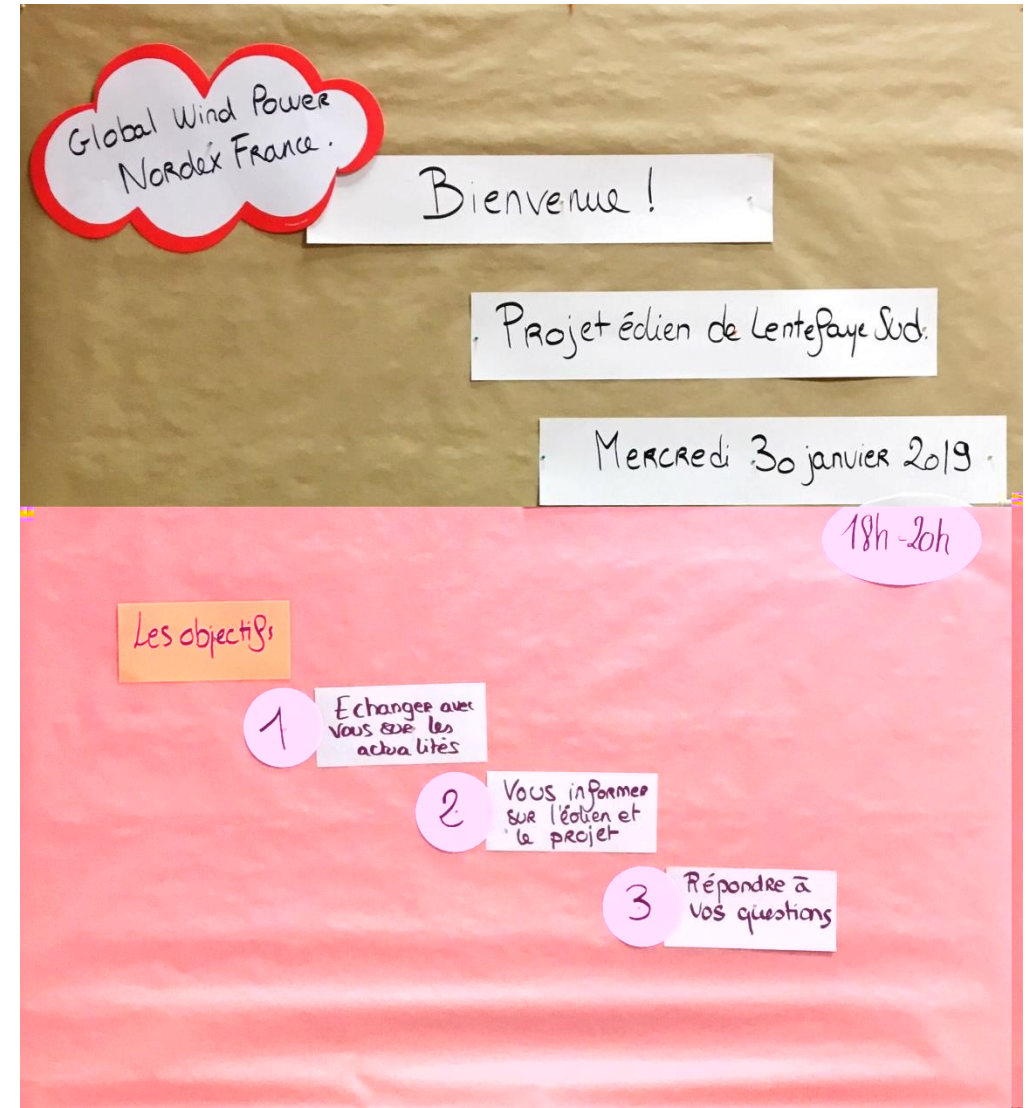 Global Wind Power
Nordex France.
Bienvenue !
Projet éolien de Lentefaye Sud.
Mercredi 30 janvier 2019
18h-20h
Les objectifs
1
Echanger avec
vous sur les
actualités
2
Vous informer
sur l'éolien et
le projet
3
Répondre à
vos questions